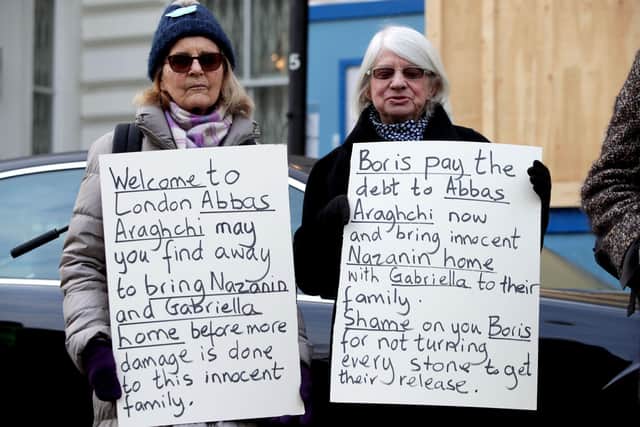 Welcome to
London Abbas
Araghchi may
you find away
to bring Nazanin
and Gabriella
home before more
damage is done
to this innocent
family.
Boris pay the
debt to Abbas
Araghchi now
and bring innocent
Nazanin home
with Gabriella to their
family.
Shame on you Boris
for not turning
every stone to get
their release.
5